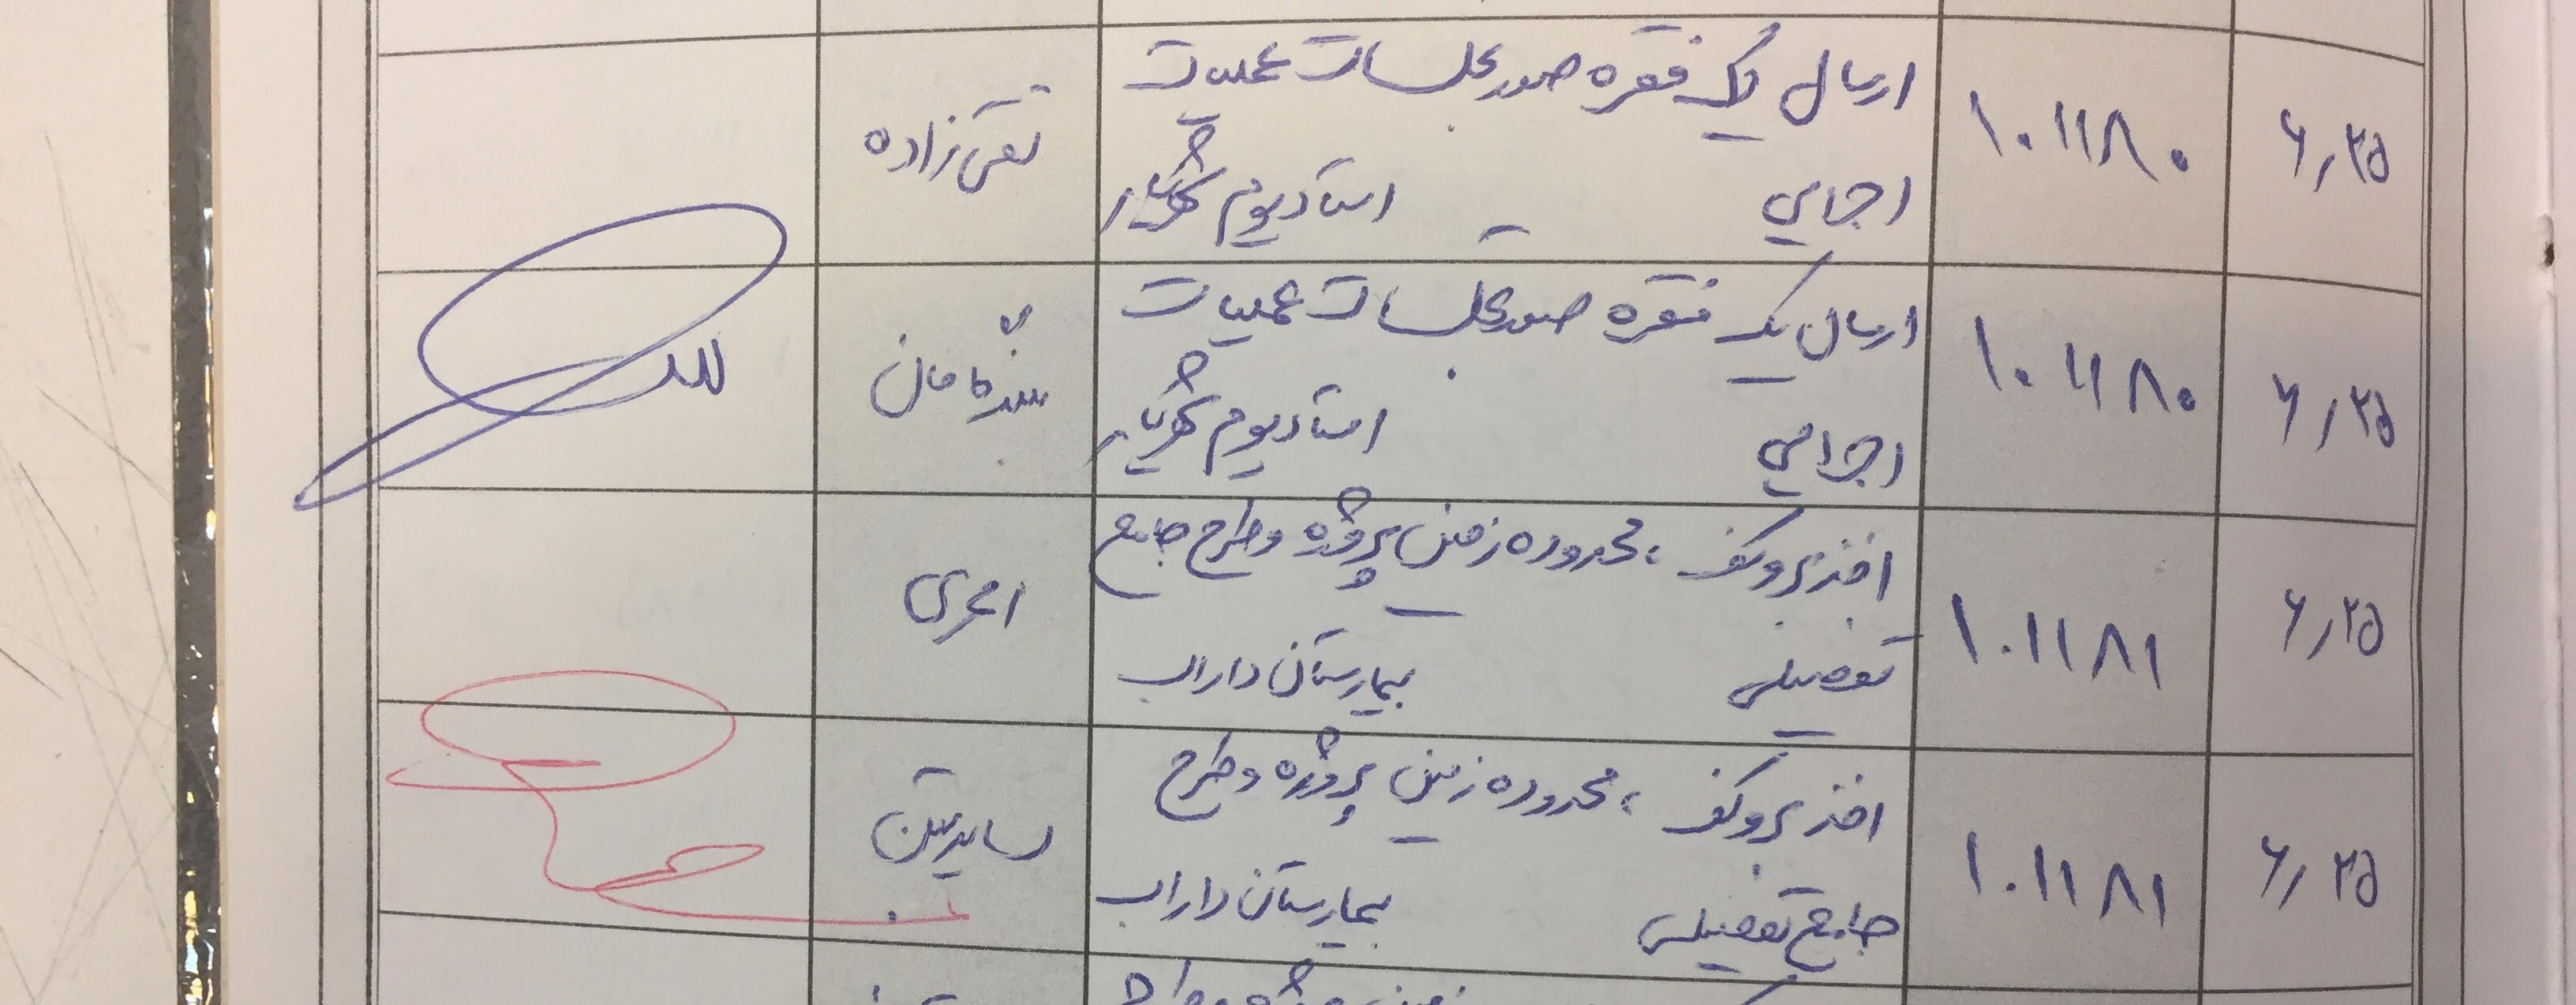 ۶٫۲۵ ۱۰۱۱۸۰ ارسال یک فقره صورتجلسات عملیات تقی زاده
اجرایی استادیوم شهریار
۶٫۲۵ ۱۰۱۱۸۰ ارسال یک فقره صورتجلسات عملیات
اجرایی استادیوم شهریار
۶٫۲۵ ۱۰۱۱۸۱ اخذ بروکف، محدوده زمین پروژه و طرح جامع
تفصیلی بیمارستان داراب
۶٫۲۵ ۱۰۱۱۸۱ اخذ بروکف، محدوده زمین پروژه و طرح
جامع تفصیلی بیمارستان داراب